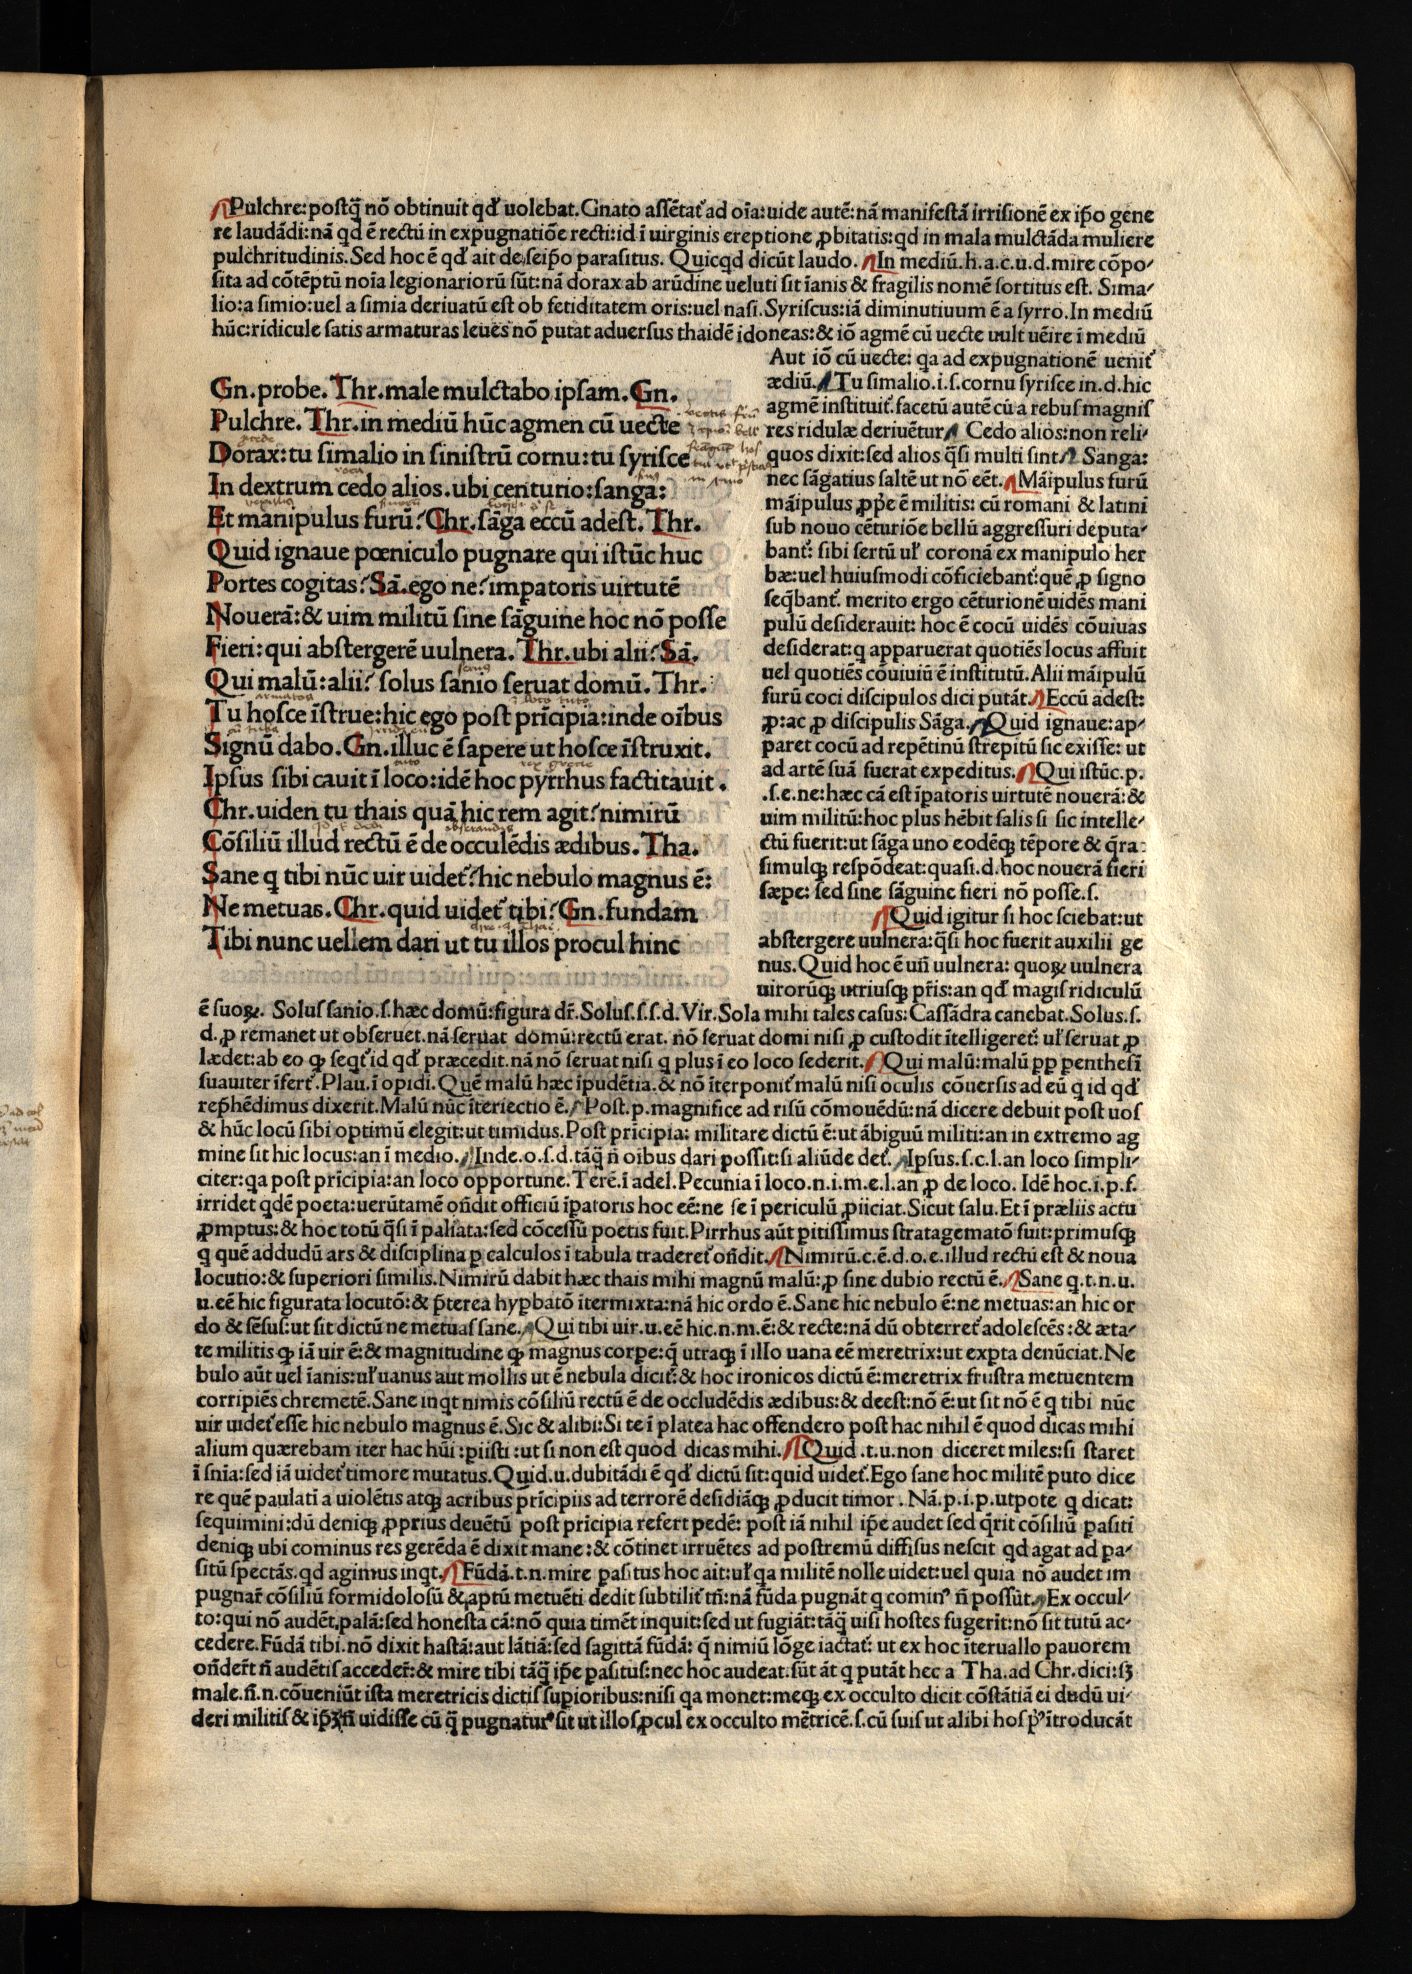 Pulchre: postq̃ nõ obtinuit qđ uolebat. Gnato assẽtat᷑ ad oĩa: uide autẽ: nã manifestã irrisionẽ ex ip̃o gene
re laudãdi: nã qd ẽ rectũ in expugnatiõe recti: id ĩ uirginis ereptione ꝓbitatis: qd in mala mulctãda muliere
pulchritudinis. Sed hoc ẽ qđ ait de seip̃o parasitus. Quicqd dicũt laudo. In mediũ. h. a. c. u. d. mire cõpo-
sita ad cõtẽptũ noĩa legionariorũ sũt: nã dorax ab arũdine ueluti sit ĩanis & fragilis nomẽ sortitus est. Sima-
lio: a simio: uel a simia deriuatũ est ob fetiditatem oris: uel nasi. Syriscus: iã diminutiuum ẽ a syrro. In mediũ
hũc: ridicule satis armaturas leues nõ putat aduersus thaidẽ idoneas: & iõ agmẽ cũ uecte uult uẽire ĩ mediũ
Gn. probe. Thr. male mulctabo ipsam. Gn.
Pulchre. Thr. in mediũ hũc agmen cũ uecte
Dorax: tu simalio in sinistrũ cornu: tu syrisce
In dextrum cedo alios. ubi centurio: sanga:
Et manipulus furũ? Chr. sãga eccũ adest. Thr.
Quid ignaue pœniculo pugnare qui istũc huc
Portes cogitas? Sã. ego ne? impatoris uirtutẽ
Nouerã: & uim militũ sine sãguine hoc nõ posse
Fieri: qui abstergerẽ uulnera. Thr. ubi alii? Sã.
Qui malũ: alii? solus sanio seruat domũ. Thr.
Tu hosce ĩstrue: hic ego post prĩcipia: inde oĩbus
Signũ dabo. Gn. illuc ẽ sapere ut hosce ĩstruxit.
Ipsus sibi cauit ĩ loco: idẽ hoc pyrrhus factitauit.
Chr. uiden tu thais quã hic rem agit? nimirũ
Cõsiliũ illud rectũ ẽ de occulẽdis ædibus. Tha.
Sane q tibi nũc uir uidet᷑? hic nebulo magnus ẽ:
Ne metuas. Chr. quid uidet᷑ tibi? Gn. fundam
Tibi nunc uellem dari ut tu illos procul hinc
Aut iõ cũ uecte: qa ad expugnationẽ uenit᷑
ædiũ. Tu simalio. i. s. cornu syrisce in. d. hic
agmẽ instituit᷑. facetũ autẽ cũ a rebus magnis
res ridulæ deriuẽtur. Cedo alios: non reli-
quos dixit: sed alios q̃si multi sint. Sanga:
nec sãgatius saltẽ ut nõ eẽt. Mãipulus furũ
mãipulus ꝓp̃e ẽ militis: cũ romani & latini
sub nouo cẽturiõe bellũ aggressuri deputa-
bant᷑: sibi sertũ uł coronã ex manipulo her
bæ: uel huiusmodi cõficiebant᷑: quẽ ꝓ signo
seq̃bant᷑. merito ergo cẽturionẽ uidẽs mani
pulũ desiderauit: hoc ẽ cocũ uidẽs cõuiuas
desiderat: q apparuerat quotiẽs locus affuit
uel quotiẽs cõuiuiũ ẽ institutũ. Alii mãipulũ
furũ coci discipulos dici putãt. Eccũ adest:
ꝓ: ac ꝓ discipulis Sãga. Quid ignaue: ap-
paret cocũ ad repẽtinũ strepitũ sic exisse: ut
ad artẽ suã fuerat expeditus. Qui istũc. p.
. s. e. ne: hæc cã est ĩpatoris uirtutẽ nouerã: &
uim militũ: hoc plus hẽbit salis si sic intelle-
ctũ fuerit: ut sãga uno eodẽqꝫ tẽpore & q̃ra
simulqꝫ respõdeat: quasi. d. hoc nouerã fieri
sæpe: sed sine sãguine fieri nõ posse. s.
Quid igitur si hoc sciebat: ut
abstergere uulnera: q̃si hoc fuerit auxilii ge
nus. Quid hoc ẽ uñ uulnera: quoꝝ uulnera
uirorũqꝫ utriusqꝫ p̃ris: an qđ magis ridiculũ
ẽ suoꝝ. Solus sanio. s. hæc domũ: figura dr̃. Solus. s. s. d. Vir. Sola mihi tales casus: Cassãdra canebat. Solus. s.
d. ꝓ remanet ut obseruet. nã seruat domũ: rectũ erat. nõ seruat domi nisi ꝓ custodit ĩtelligeret᷑: uł seruat ꝓ
lædet: ab eo qꝫ seqt᷑ id qđ præcedit. nã nõ seruat nisi q plus ĩ eo loco sederit. Qui malũ: malũ ꝑp ꝑenthesĩ
suauiter ĩfert᷑. Plau. ĩ opidi. Quẽ malũ hæc ĩpudẽtia. & nõ ĩterponit᷑ malũ nisi oculis cõuersis ad eũ q id qđ
rep̃hẽdimus dixerit. Malũ nũc ĩteriectio ẽ. Post. p. magnifice ad risũ cõmouẽdũ: nã dicere debuit post uos
& hũc locũ sibi optimũ elegit: ut timidus. Post prĩcipia: militare dictũ ẽ: ut ãbiguũ militi: an in extremo ag
mine sit hic locus: an ĩ medio. Inde. o. s. d. tãq̃ ñ oibus dari possit: si aliũde det᷑. Ipsus. s. c. l. an loco simpli-
citer: qa post prĩcipia: an loco opportune. Terẽ. ĩ adel. Pecunia ĩ loco. n. i. m. e. l. an ꝓ de loco. Idẽ hoc. i. p. f.
irridet qdẽ poeta: uerũtamẽ oñdit officiũ ĩpatoris hoc eẽ: ne se ĩ periculũ ꝓiiciat. Sicut salu. Et ĩ præliis actu
ꝓmptus: & hoc totũ q̃si ĩ paliata: sed cõcessũ poetis fuit. Pirrhus aũt ꝑitissimus stratagematõ fuit: primusqꝫ
q quẽ addudũ ars & disciplina ꝑ calculos ĩ tabula traderet᷑ oñdit. Nimirũ. c. ẽ. d. o. e. illud rectũ est & noua
locutio: & superiori similis. Nimirũ dabit hæc thais mihi magnũ malũ: ꝓ sine dubio rectũ ẽ. Sane q. t. n. u.
u. eẽ hic figurata locutõ: & p̃terea hyꝑbatõ ĩtermixta: nã hic ordo ẽ. Sane hic nebulo ẽ: ne metuas: an hic or
do & sẽsus: ut sit dictũ ne metuas sane. Qui tibi uir. u. eẽ hic. n. m. ẽ: & recte: nã dũ obterret᷑ adolescẽs: & æta-
te militis qꝫ iã uir ẽ: & magnitudine qꝫ magnus corꝑe: q̃ utraqꝫ ĩ illo uana eẽ meretrix: ut exꝑta denũciat. Ne
bulo aũt uel ĩanis: uł uanus aut mollis ut ẽ nebula dicit᷑: & hoc ironicos dictũ ẽ: meretrix frustra metuentem
corripiẽs chremetẽ. Sane inqt nimis cõsiliũ rectũ ẽ de occludẽdis ædibus: & deest: nõ ẽ: ut sit nõ ẽ q tibi nũc
uir uidet᷑ esse hic nebulo magnus ẽ. Sic & alibi: Si te ĩ platea hac offendero post hac nihil ẽ quod dicas mihi
alium quærebam iter hac hũi: ꝑiisti: ut si non est quod dicas mihi. Quid. t. u. non diceret miles: si staret
ĩ snĩa: sed iã uidet᷑ timore mutatus. Quid. u. dubitãdi ẽ qđ dictũ sit: quid uidet᷑. Ego sane hoc militẽ puto dice
re quẽ paulatĩ a uiolẽtis atqꝫ acribus prĩcipiis ad terrorẽ desidiãqꝫ ꝓducit timor. Nã. p. i. p. utpote q dicat:
sequimini: dũ deniqꝫ ꝓprius deuẽtũ post prĩcipia refert pedẽ: post iã nihil ip̃e audet sed q̃rit cõsiliũ ꝑasiti
deniqꝫ ubi cominus res gerẽda ẽ dixit mane: & cõtinet irruẽtes ad postremũ diffisus nescit qd agat ad ꝑa-
sitũ spectãs. qd agimus inqt. Fũdã. t. n. mire ꝑasitus hoc ait: uł qa militẽ nolle uidet: uel quia nõ audet im
pugnar̃ cõsiliũ formidolosũ & aptũ metuẽti dedit subtilit᷑ tñ: nã fũda pugnãt q cominꝰ ñ possũt. Ex occul-
to: qui nõ audẽt, palã: sed honesta cã: nõ quia timẽt inquit: sed ut fugiãt: tãq̃ uisi hostes fugerĩt: nõ sit tutũ ac-
cedere. Fũdã tibi. nõ dixit hastã: aut lãtiã: sed sagittã fũdã: q̃ nimiũ lõge iactat᷑: ut ex hoc ĩteruallo pauorem
oñder̃t ñ audẽtis acceder̃: & mire tibi tãq̃ ip̃e ꝑasitus: nec hoc audeat. sũt ãt q putãt hec a Tha. ad Chr. dici: sꝫ
male. ñ. n. cõueniũt ista meretricis dictis suꝑioribus: nisi qa monet: meqꝫ ex occulto dicit cõstãtiã ei dudũ ui-
deri militis & ip̃ꝫ ñ uidisse cũ q̃ pugnaturꝰ sit ut illos ꝓcul ex occulto mẽtricẽ. s. cũ suis ut alibi hos pꝰ ĩtroducãt